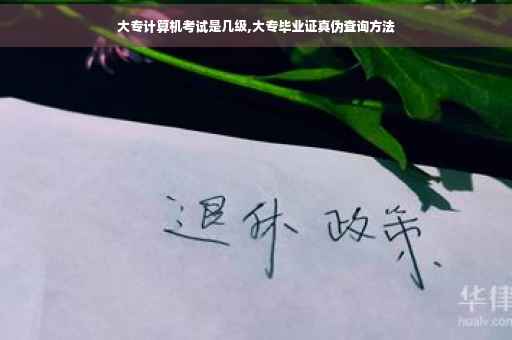 大专计算机考试是几级,大专毕业证真伪查询方法
退休 政策
华律
hualv.com